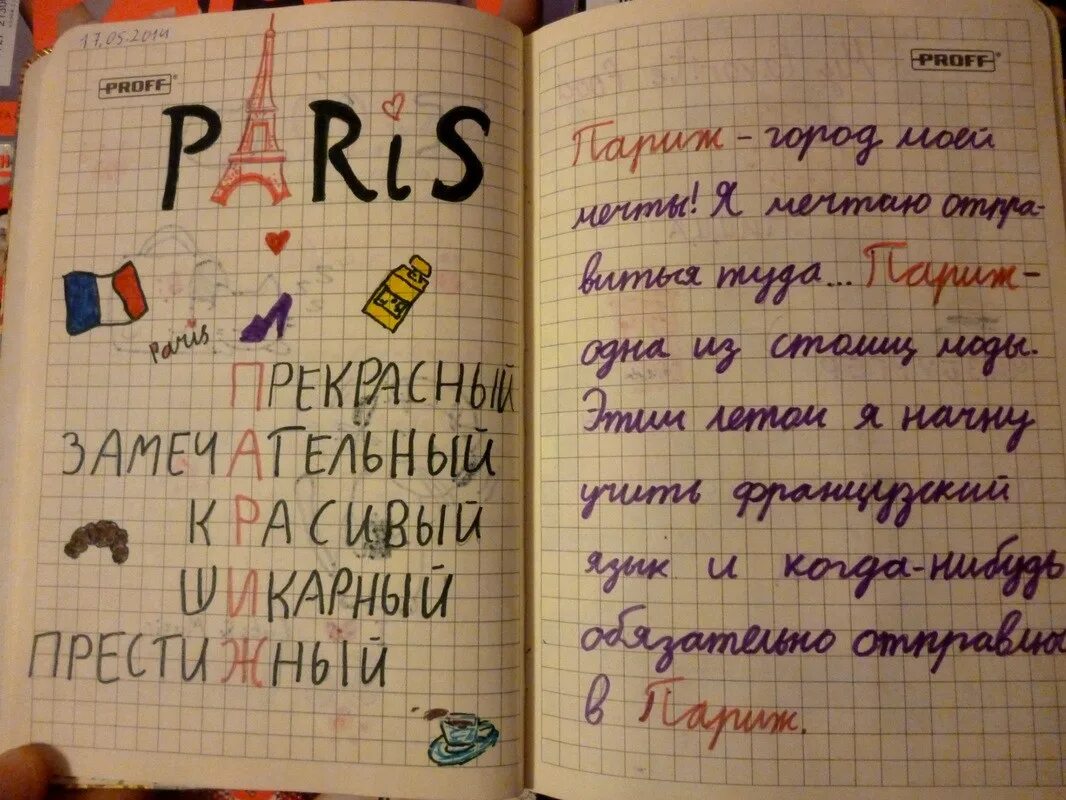 17.05.2014
PROFF
PARiS
Paris
ПРЕКРАСНЫЙ
ЗАМЕЧАТЕЛЬНЫЙ
КРАСИВЫЙ
ШИКАРНЫЙ
ПРЕСТИЖНЫЙ
PROFF
Париж - город моей
мечты! Я мечтаю отпра-
виться туда... Париж -
одна из столиц моды.
Этим летом я начну
учить французский
язык и когда-нибудь
обязательно отправлю
в Париж.